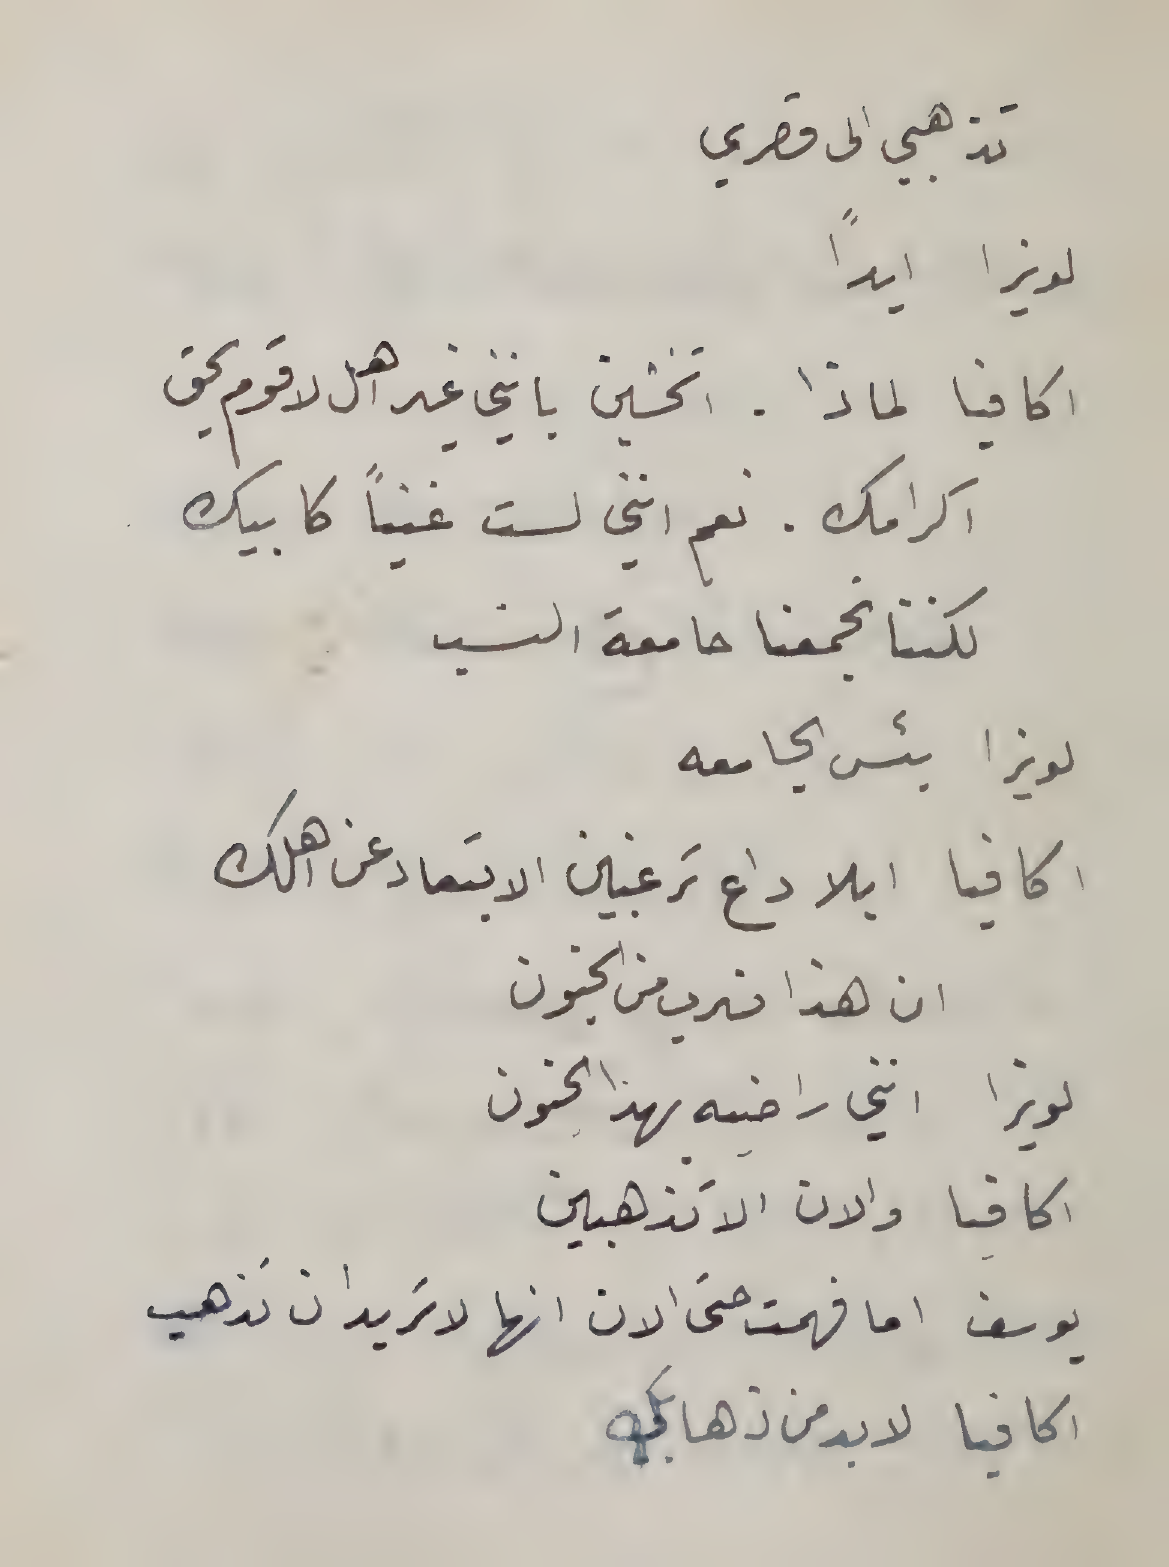 تذهبي الى قصري
لويزا ابداً
اكافيا لماذا . اتخشين بانني غير اهل لاقوم بحق
اكرامك . نعم انني لست غنياً كابيك
لكننا تجمعنا جامعة النسب
لويزا بئس الجامعه
اكافيا ابلا داع ترغبين الابتعاد عن اهلك
ان هذا ضرب من الجنون
لويزا انني راضيه بهذا الجنون
اكافيا والان الا تذهبين
يوسف اما فهمت حتى الان انها لا تريد ان تذهب
اكافيا لا بد من ذهابك